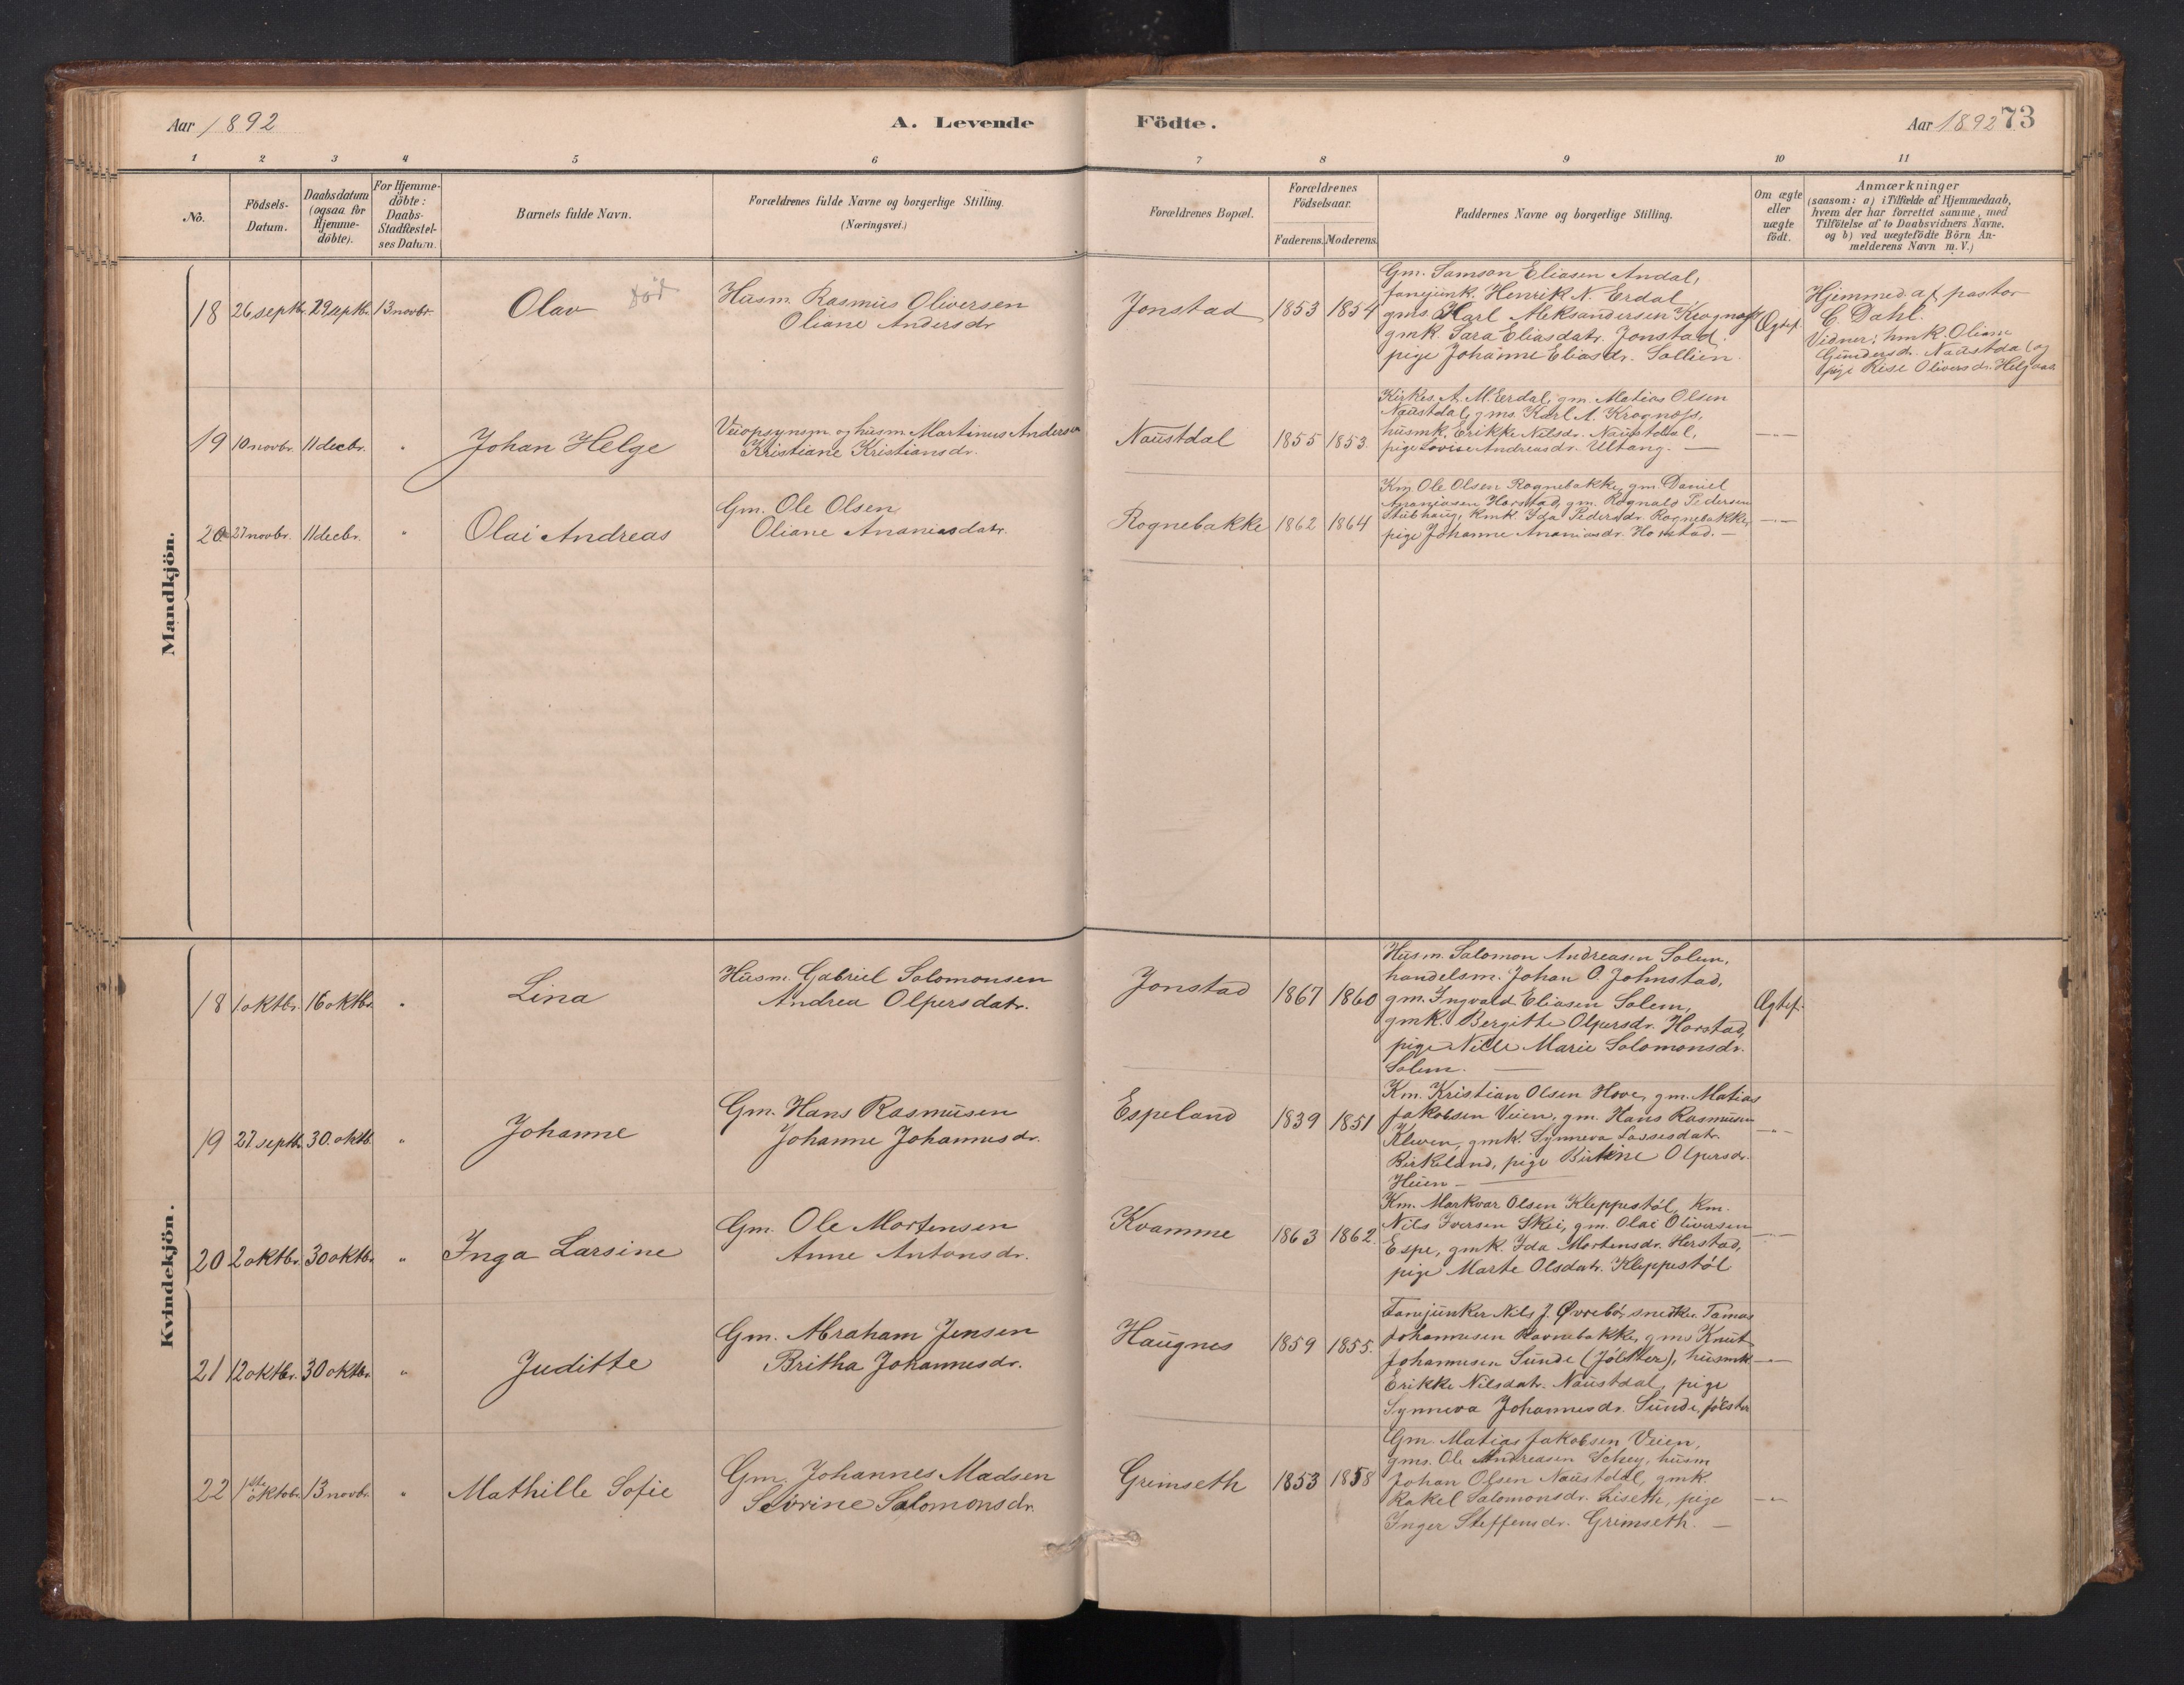 Aar 1892
A. Levende
Födte.
Aar 1892
73
1 2 3 4 5 6 7 8 9 10 11
No.
Födsels-
Datum.
Daabsdatum
(ogsaa for
Hjemme-
döbte).
For Hjemme-
döbte:
Daabs-
Stadfæstel-
ses Datum.
Barnets fulde Navn.
Forældrenes fulde Navne og borgerlige Stilling.
(Næringsvei.)
Forældrenes Bopæl.
Forældrenes
Födselsaar.
Faderens. Moderens.
Faddernes Navne og borgerlige Stilling.
Om ægte
eller
uægte
födt.
Anmærkninger
(saasom: a) i Tilfælde af Hjemmedaab,
hvem der har forrettet samme, med
Tilföielse af to Daabsvidners Navne.
og b) ved uægtefödte Börn An-
melderens Navn m. V.)
Mandkjön.
18 26 septbr. 29 septbr. 13 novbr.
Olav død
Husm. Rasmus Oliversen
Oliane Andersdr
Jonstad 1853 1854
Gm. Samson Eliasen Andal,
fanejunk. Henrik N. Erdal,
gms Karl Aleksandersen Krognass
gmk. Sara Eliasdatr. Jonstad.
pige Johanne Eliasdr. Sollien.
Ægtef.
Hjemmed. af pastor
C. Dahl.
Vidner: hmk. Oliane
Gundersdr. Naustdal og
pige Lise Oliversdr. Helgaas
19 10 novbr. 11 decbr. "
Johan Helge
Veiopsynsm. og husm. Martinus Andersen
Kristiane Kristiansdr.
Naustdal 1855 1853.
Kirkes. A. M. Erdal, gm. Matias Olsen
Naustdal, gms. Karl A. Krognass,
husmk. Erikke Nilsdr. Naustdal,
pige Lovise Andreasdr. Ullang. —
— " —
20 27 novbr. 11 decbr. "
Olai Andreas
Gm. Ole Olsen
Oliane Ananiasdatr.
Rognebakke 1862 1864
Km. Ole Olsen Rognebakke, gm. Daniel
Ananiasen Horstad, gm. Rognald Pedersen
Stubhaug, kmk Ida Pedersdr. Rognebakke,
pige Johanne Ananiasdr. Horstad. —
— " —
Kvindekjön.
18 1 oktbr. 16 oktbr. "
Lina
Husm. Gabriel Salomonsen
Andrea Olpersdatr.
Jonstad 1867 1860
Husm. Salomon Andreasen Solem,
handelsm. Johan O. Johnstad,
gm. Ingvald Eliasen Solem,
gmk. Bergitte Olpersdr. Horstad,
pige Nille Marie Salomonsdr.
Solem. —
Ægtef.
19 27 septbr. 30. oktb. "
Johanne
Gm. Hans Rasmusen
Johanne Johannesdr.
Espeland 1839 1851
Km. Kristian Olsen Hove, gm. Matias
Jakobsen Veien, gm. Hans Rasmusen
Kleven, gmk. Synneva Lassesdatr.
Birkeland, pige Olpersdr.
Heien —
— " —
20 2 oktbr. 30 oktbr. "
Inga Larsine
Gm. Ole Mortensen
Anne Antonsdr.
Kvamme 1863 1862.
Km. Markvar Olsen Kleppestøl, km.
Nils Iversen Skei, gm. Olai Oliversen
Espe, gmk. Ida Mortensdr. Herstad,
pige Marte Olsdatr. Kleppestøl
— " —
21 12 oktbr. 30 oktbr. "
Juditte
Gm. Abraham Jensen
Britha Johannesdr.
Haugnes 1859 1855.
Fanejunker Nils J. Øvrebø, snedker Tamas
Johannesen Ravnebakke, gms Knut
Johannesen Sunde (Jølster), husmk
Erikke Nilsdatr. Naustdal, pige
Synneva Johannesdr. Sunde, Jølster
— " —
22 1ste oktobr. 13 novbr. "
Mathille Sofie
Gm. Johannes Madsen
Severine Salomonsdr.
Grimseth 1853 1858
Gm. Matias Jakobsen Veien,
gms. Ole Andreasen Schey, husm
Johan Olsen Naustdal, gmk.
Rakel Salomonsdr. Liseth, pige
Inger Steffensdr. Grimseth. —
— " —